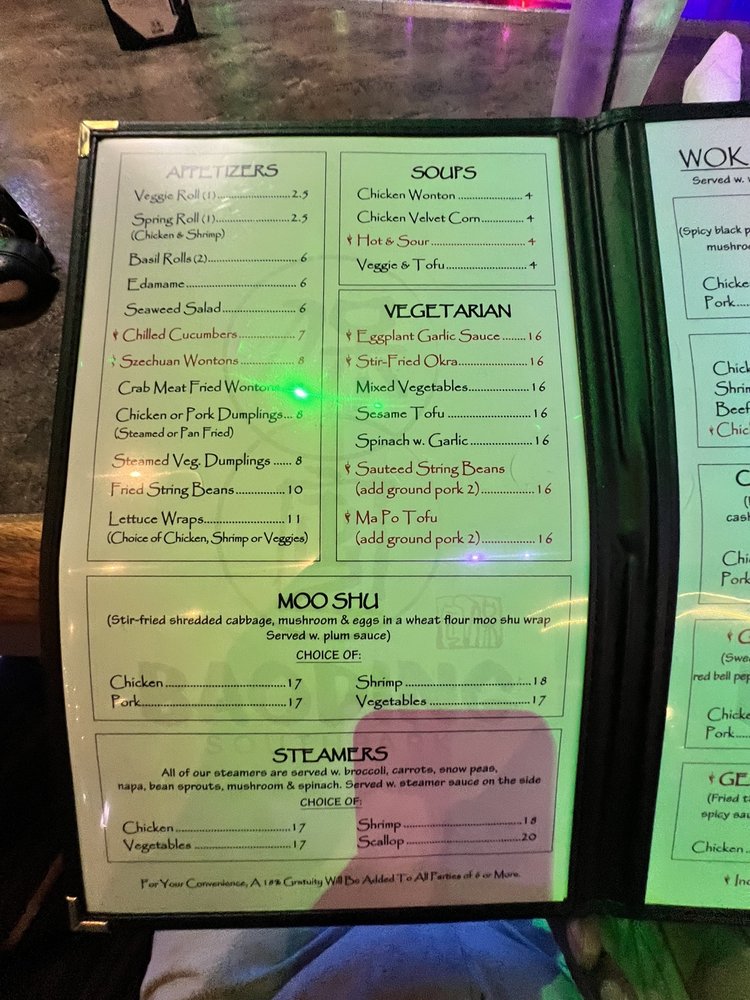 APPETIZERS
Veggie Roll (1)..........................2.5
Spring Roll (1)..........................2.5
(Chicken & Shrimp)
Basil Rolls (2)..........................6
Edamame..........................6
Seaweed Salad..........................6
Chilled Cucumbers..........................7
Szechuan Wontons..........................8
Crab Meat Fried Wontons
Chicken or Pork Dumplings...8
(Steamed or Pan Fried)
Steamed Veg. Dumplings ......8
Fried String Beans................10
Lettuce Wraps..........................11
(Choice of Chicken, Shrimp or Veggies)
SOUPS
Chicken Wonton......................4
Chicken Velvet Corn..............4
Hot & Sour..........................4
Veggie & Tofu......................4
VEGETARIAN
Eggplant Garlic Sauce ........16
Stir-Fried Okra......................16
Mixed Vegetables....................16
Sesame Tofu ..........................16
Spinach w. Garlic ....................16
Sauteed String Beans
(add ground pork 2)................16
Ma Po Tofu
(add ground pork 2)................16
MOO SHU
(Stir-fried shredded cabbage, mushroom & eggs in a wheat flour moo shu wrap
Served w. plum sauce)
CHOICE OF:
Chicken..........................17
Shrimp..........................18
Pork..........................17
Vegetables..........................17
STEAMERS
All of our steamers are served w. broccoli, carrots, snow peas,
napa, bean sprouts, mushroom & spinach. Served w. steamer sauce on the side
CHOICE OF:
Chicken..........................17
Shrimp..........................18
Vegetables..........................17
Scallop..........................20
For Your Convenience, A 18% Gratuity Will Be Added To All Parties of 6 or More.
WOK
Served w.
(Spicy black
Pork
Beef
cash
Pork
(Swe
red bell pep
Pork
GE
(Fried
spicy
Chicken